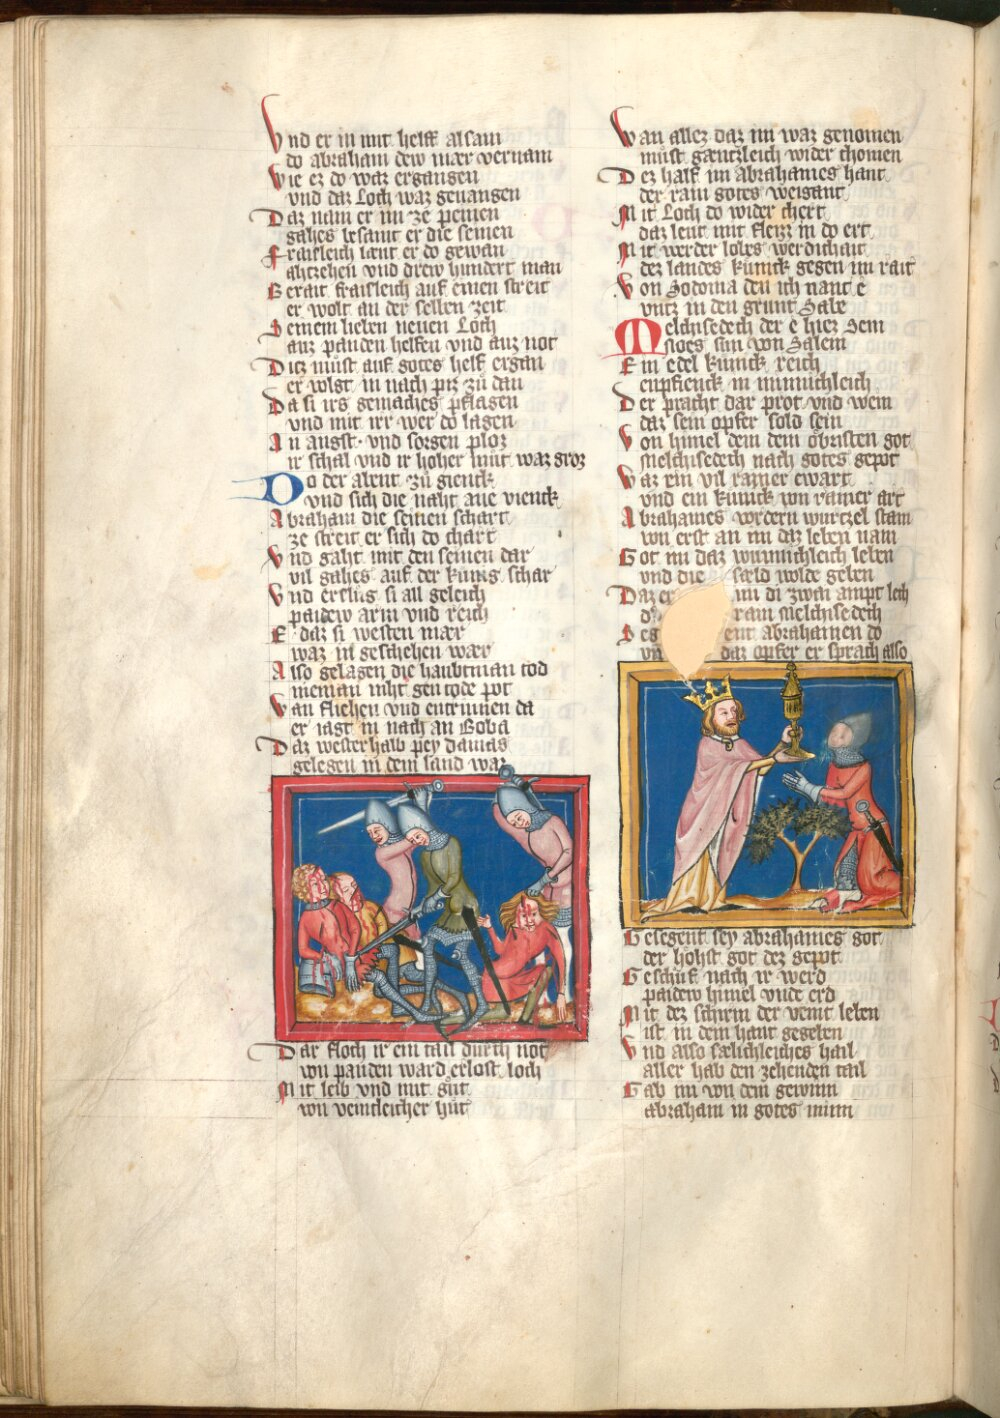 Vnd er in mit helff alsam
do abraham dew mær vernam
Wie ez do waz ergangen
vnd daz Loch waz geuangen
Daz nam er im ze peinen
gahes besamt er die seinen
Fraisleich læut er do gewan
ahtzehen vnd drew hundert man
Berait fraisleich auf einen streit
er wolt an der selben zeit
Seinem lieben neuen Loch
auz panden helfen vnd auz not
Diez must auf gotes helf ergan
er volgt in nach piz zu dan
Da si irs gemaches pflagen
vnd mit irr wer do lagen
An angst vnd sorgen ploz
ir schal vnd ir hoher mut waz groz
Do der abent zu gienck
vnd sich die naht ane vienck
Abraham die seinen schart
ze streit er sich do chart
Vnd gaht mit den seinen dar
vil gahes auf der kunig schar
Vnd erslug si all geleich
paidew arm vnd reich
E daz si westen mær
waz in geschehen wær
Also gelagen die haubtman tod
nieman niht gen tode pot
Wan fliehen vnd entrinnen da
er iagt in nach an Boba
Daz westerhalb pey damas
gelegen in dem land waz
Dar floch ir ein tail durch not
von panden ward erlost loch
Mit leib vnd mit gut
von veintleicher hut
Wan allez daz im waz genomen
must gæntzleich wider chomen
Dez half im Abrahames hant
der rain gotes weigant
Mit Loch do wider chert
daz leut mit fleizz in do ert
Mit werder lobes werdichait
dez landes kunick gegen im rait
Von Sodoma den ich nant e
vntz in den grunt Sale
Melchisedech der e hiez Sem
Noes sun von Salem
Ein edel kunick reich
enpfienck in minnichleich
Der pracht dar prot vnd wein
daz sein opfer sold sein
Von himel dem dem obristen got
Melchisedech nach gotes gepot
Waz ein vil rainer ewart
vnd ein kunick von rainer art
Abrahames vordern wurtzel stam
von erst an im daz leben nam
Got im daz wunnichleich leben
vnd die sæld wolde geben
Daz er im di zwai ampt lech
d rain Melchisedech
Seg ent abrahamen do
vn daz opfer er sprach also
Gelegent sey abrahames got
der hohst got dez gepot
Geschuf nach ir werd
paidew himel vnde erd
Mit dez schirm der veint leben
ist in dem hant gegeben
Vnd also sælichleiches hail
aller hab den zehenden tail
Gab im von dem gewinn
abraham in gotes minn